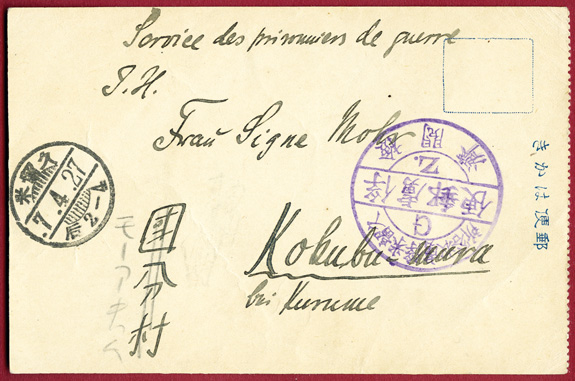 Service des prisonniers de guerre
I. H.
Frau Signe Mohr
Kokubu-mura
bei Kurume
国分村
きかは便郵
7.4.27
俘虜郵便
檢閲濟